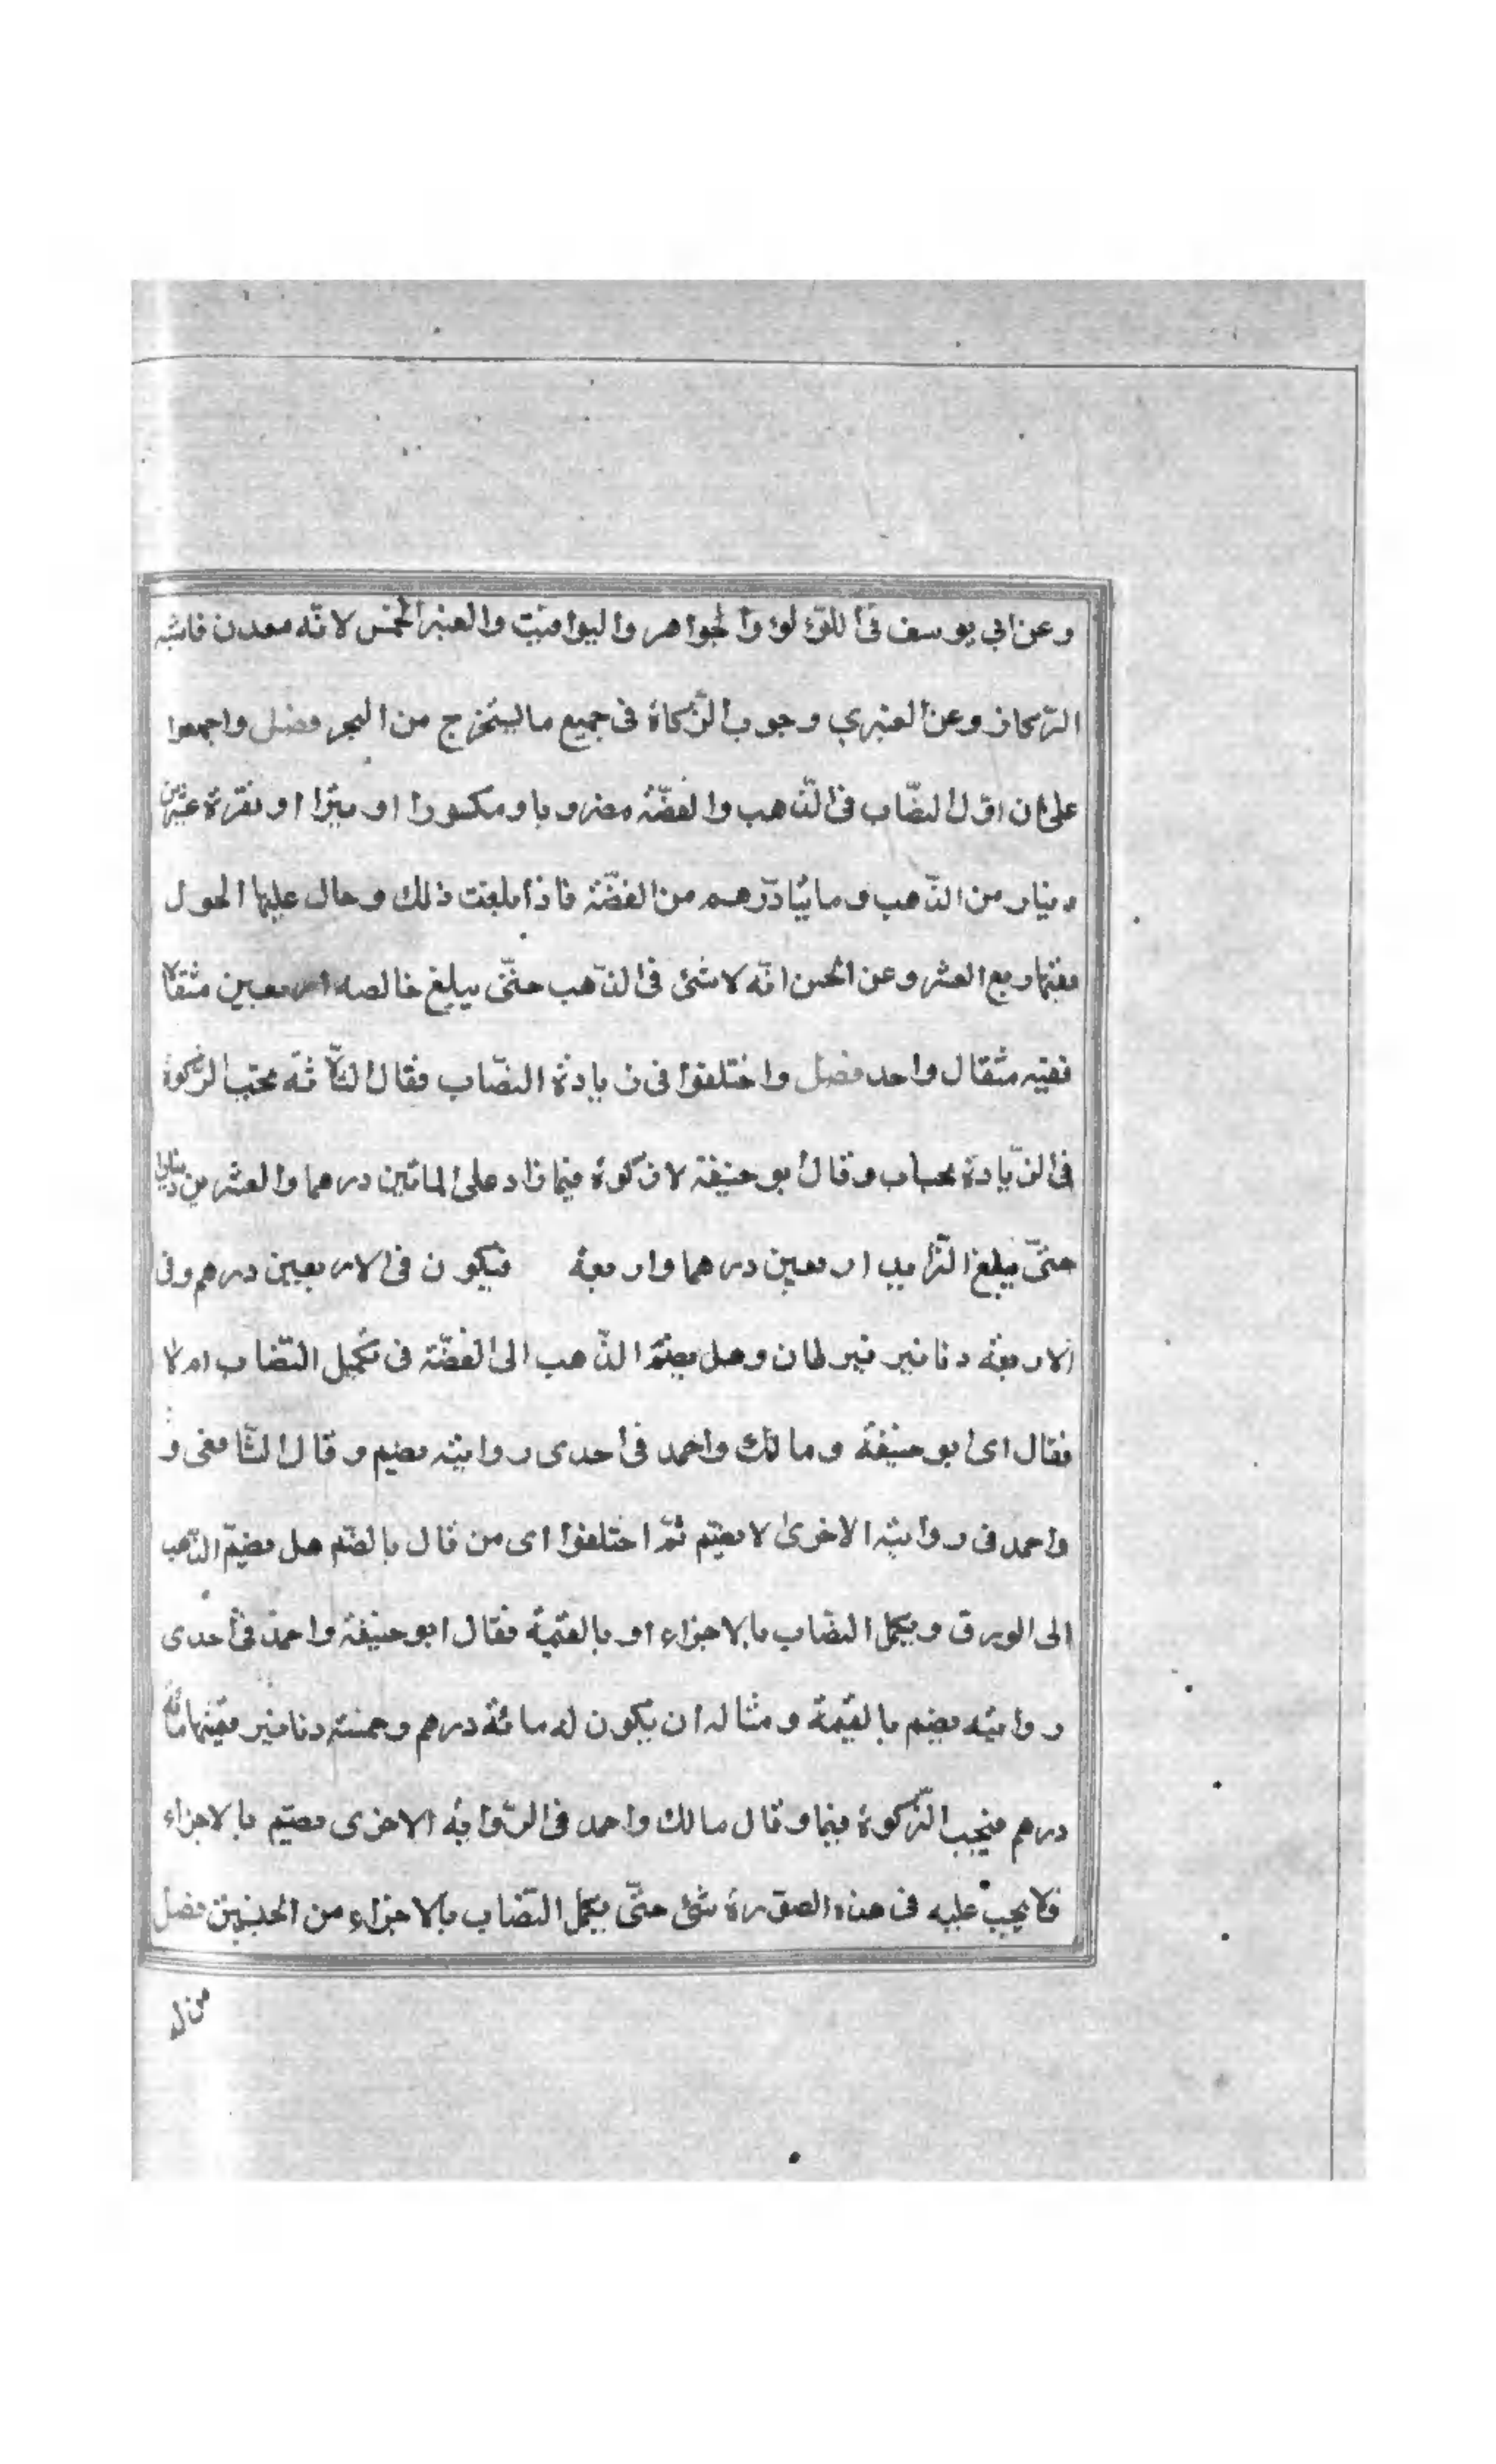 وعن ابي يوسف في اللؤلؤ والجواهر واليواقيت والعنبر الخمس لانه معدن فاشبه
الركاز وعن العنبري وجوب الزكاة في جميع ما يستخرج من البحر فصل واجمعوا
على ان اول النصاب في الذهب والفضة مضروبا ومكسورا او تبرا او نقرة عشرين
دينار من الذهب ومائتا درهم من الفضة فاذا بلغت ذلك وحال عليها الحول
ففيها ربع العشر وعن الحسن انه لا شئ في الذهب حتى يبلغ خالصه اربعين مثقالا
ففيه مثقال واحد فصل واختلفوا في زيادة النصاب فقال الثلاثه تجب الزكوة
في الزيادة بحساب وقال ابو حنيفة لا زكوة فيما زاد على المائتين درهما والعشرين دينارا
حتى يبلغ الزايد اربعين درهما واربعة فيكون في الاربعين درهم وفي
الاربعة دنانير قيراطان وهل يضم الذهب الى الفضة في تكميل النصاب ام لا
فقال اى ابو حنيفة ومالك واحمد في احدى روايتيه يضم وقال الشافعى و
واحمد في روايته الاخرى لا يضم ثم اختلفوا اى من قال بالضم هل يضم الذهب
الى الورق ويكمل النصاب بالاجزاء او بالقيمة فقال ابو حنيفة واحمد في احدى
روايتيه يضم بالقيمة ومثاله ان يكون له مائة درهم وخمسة دنانير قيمتها مائة
درهم فيجب الزكوة فيها وقال مالك واحمد في الرواية الاخرى يضم بالاجزاء
فلا يجب عليه في هذه الصورة شئ حتى يكمل النصاب بالاجزاء من الجنسين فصل
من له